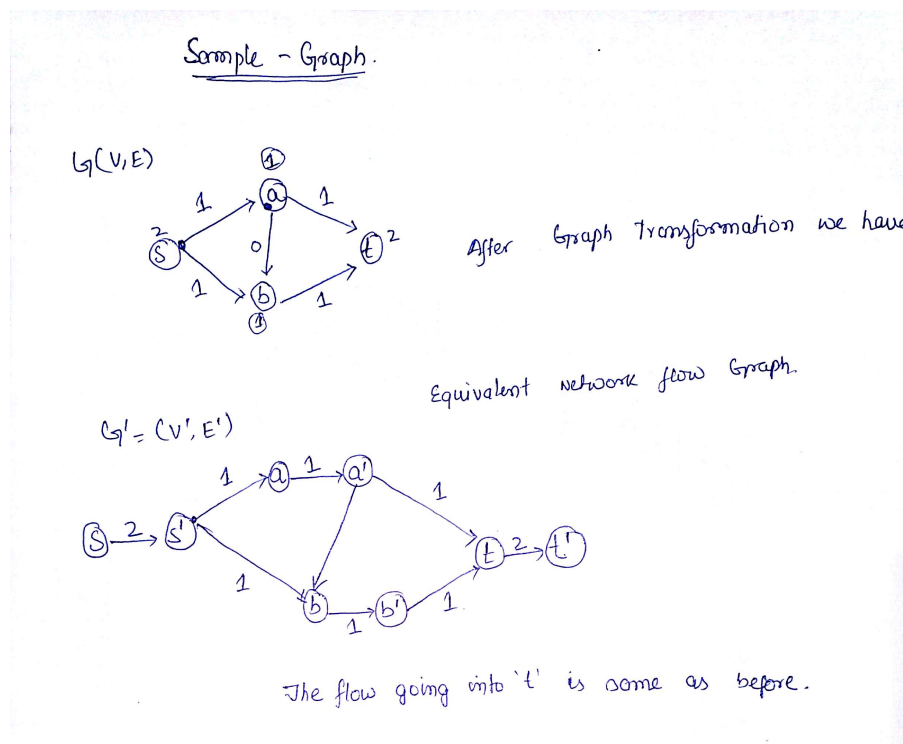 Sample - Graph.
G(V,E)
1
1
a
1
2
S
0
t
2
1
b
1
1
After Graph Transformation we have
Equivalent network flow Graph.
G' = (V', E')
1
a
1
a'
1
S
2
s'
t
2
t'
1
b
1
b'
1
The flow going into 't' is same as before.